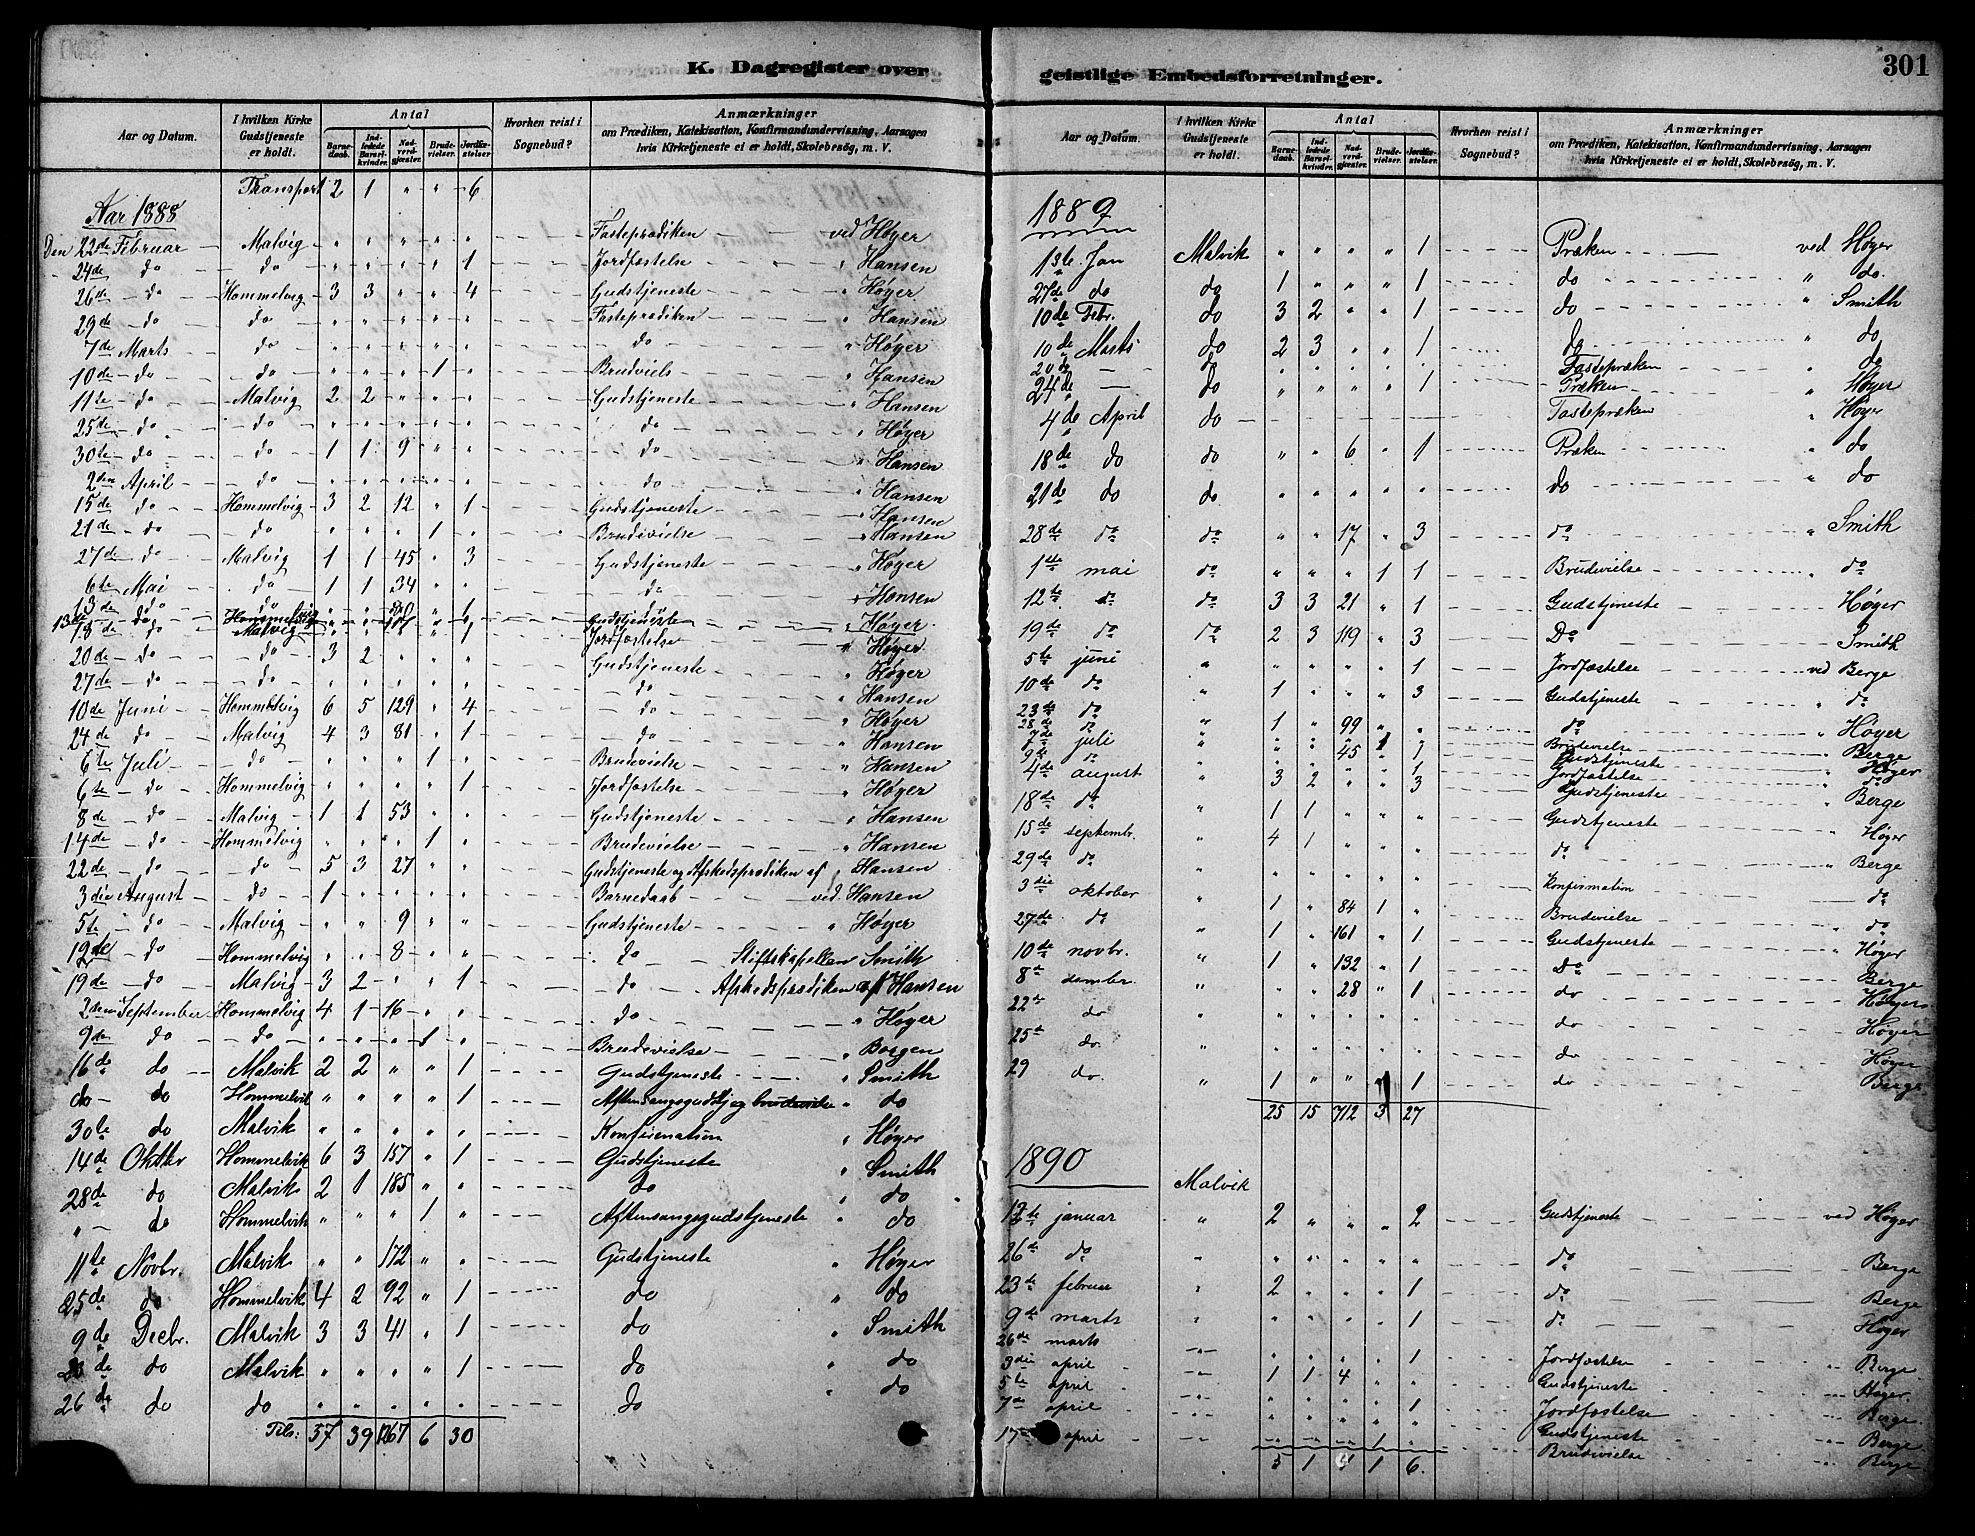 K. Dagregister over geistlige Embedsforretninger. 301
Aar og Datum. I hvilken Kirke Gudstjeneste er holdt. Antal Barnedaab. Indledede Barselkvinder. Nadverdgjæster. Brudevielser. Jordfæstelser. Hvorhen reist i Sognebud? Anmærkninger om Prædiken, Katekisation, Konfirmandundervisning, Aarsagen hvis Kirketjeneste ei er holdt, Skolebesøg, m. V.
Transport 2 1 " " 6
Aar 1888
Den 22de Februar Malvig " " " " " Fasteprædiken ved Høyer
24de do do " " " " 1 Jordfæstelse " Hansen
26de do Hommelvig 3 3 " " 4 Gudstjeneste " Høyer
29de do do " " " " " Fasteprædiken " Hansen
7de Marts do " " " " " do " Høyer
10de do do " " " 1 " Brudviels " Hansen
11te do Malvig 2 2 " " " Gudstjeneste " Hansen
25de do do " " " " " do " Høyer
30te do do 1 1 9 " " do " Hansen
2den April do " " " " " do " Hansen
15de do Hommelvig 3 2 12 " 1 Gudstjeneste " Hansen
21de do do " " " 1 " Brudevielse " Hansen
27de do Malvig 1 1 45 " 3 Gudstjeneste " Høyer
6te Mai do 1 1 34 " " do " Hansen
13de do do
13de do Hommelvig Gudstjeneste " Høyer
18de do Malvig " " " " 1 Jordfæstelse " Høyer
20de do do 3 2 " " " Gudstjeneste " Høyer
27de do do " " " " " do " Hansen
10de Juni Hommelvig 6 5 129 " 4 do " Høyer
24de do Malvig 4 3 81 " 1 do " Hansen
6te Juli do " " " 1 " Brudevielse " Hansen
6te do Hommelvig " " " " 1 Jordfæstelse " Høyer
8de do Malvig 1 1 53 " " Gudstjeneste " Hansen
14de do Hommelvig " " " 1 " Brudevielse " Hansen
22de do do 5 3 27 " " Gudstjeneste og Afskedsprædiken af Hansen
3die August do 1 " " " " Barnedaab ved Hansen
5te do Malvig " " 9 " " Gudstjeneste " Høyer
12te do Hommelvig " " 8 " " do Stiftskapellan Smith
19de do Malvig 3 2 " " 1 do Afskedsprædiken af Hansen
2den September Hommelvig 4 1 16 " " do " Høyer
9de do do " " " 1 " Brudevielse " Borgen
16de do Malvik 2 2 " " 1 Gudstjeneste " Smith
do do Hommelvik " " " " 1 Aftensangsgudstj og brudevielse " do
30te do Malvik " " " " " Konfirmation " Høyer
14de Oktbr Hommelvik 6 3 157 " 1 Gudstjeneste " Smith
28de do Malvik 2 1 185 " " do " do
" do Hommelvik " " " 1 " Aftensangsgudstjeneste " do
11te Novbr. Malvik " " 172 " " Gudstjeneste " Høyer
25de do Hommelvik 4 2 92 " 1 do " do
9de Decbr. Malvik 3 3 41 " 1 do " Smith
23de do Malvik " " " " 1 do " do
26de do do " " " " " do " do
Tils: 57 39 1267 6 30
Aar og Datum. I hvilken Kirke Gudstjeneste er holdt. Antal Barnedaab. Indledede Barselkvinder. Nadverdgjæster. Brudevielser. Jordfæstelser. Hvorhen reist i Sognebud? Anmærkninger om Prædiken, Katekisation, Konfirmandundervisning, Aarsagen hvis Kirketjeneste ei er holdt, Skolebesøg, m. V.
1889
13te Jan Malvik " " " " 1 Præken ved Høyer
27de do do 1 " " " 1 do " do.
10de Febr. do 3 2 " " 1 do " Smith
10de Marts do 2 3 " " 1 do " do
20de do " " " " " Fastepræken " do
24de do " " " " 1 Præken " Høyer
4de April do Fastepræken " Høyer
18de do do " " 6 " 1 Præken " do
21de do do " " " " " do " do
28de do do " " 17 " 3 do " Smith
1ste mai do " " " 1 1 Brudevielse " do
12te do do 3 3 21 " 1 Gudstjeneste Høyer
19de do do 2 3 119 " 3 Do Smith
5te juni " " " " " 1 Jordfæstelse ved Berge
10de do " 1 " " " 3 Gudstjeneste " do
23de do " 1 " 99 " " do " Høyer
28de do " Brudevielse " Berge
7de juli " 45 Gudstjeneste Høyer
9de do " " " " " 1 Jordfæstelse do
4de august " 3 2 " " 3 Gudstjeneste " Berge
18de do " 1 1 " " " Gudstjeneste Høyer
15de septembr. " 4 1 " " " do " Berge
29de do Konfirmation do
3die oktober " 1 " 84 1 " Brudevielse do
27de do " 1 " 161 " 1 Gudstjeneste Høyer
10de novbr. " 1 " 132 " 1 Do Berge
8de dembr. " " " 28 " 1 do Høyer
22de do " " " " " " do Høyer
25de do. " " " " " " do Høyer
29 do. " 1 " " " 1 do Berge
25 15 712 3 27
1890
Malvik
12te januar " 2 " " " 2 Gudstjeneste ved Høyer
26de do " " " " " " do Berge
23de februar " 2 " " " 1 do Berge
9de marts " " " " " 1 do Høyer
26de marts
3die april " " " " 1 Jordfæstelse " Berge
5te april 1 1 4 " " Gudstjeneste " Høyer.
7de april " " " " 1 Jordfæstelse Berge
17 april Gudstjeneste " Berge
Brudevielse " Berge
5 1 4 1 6.